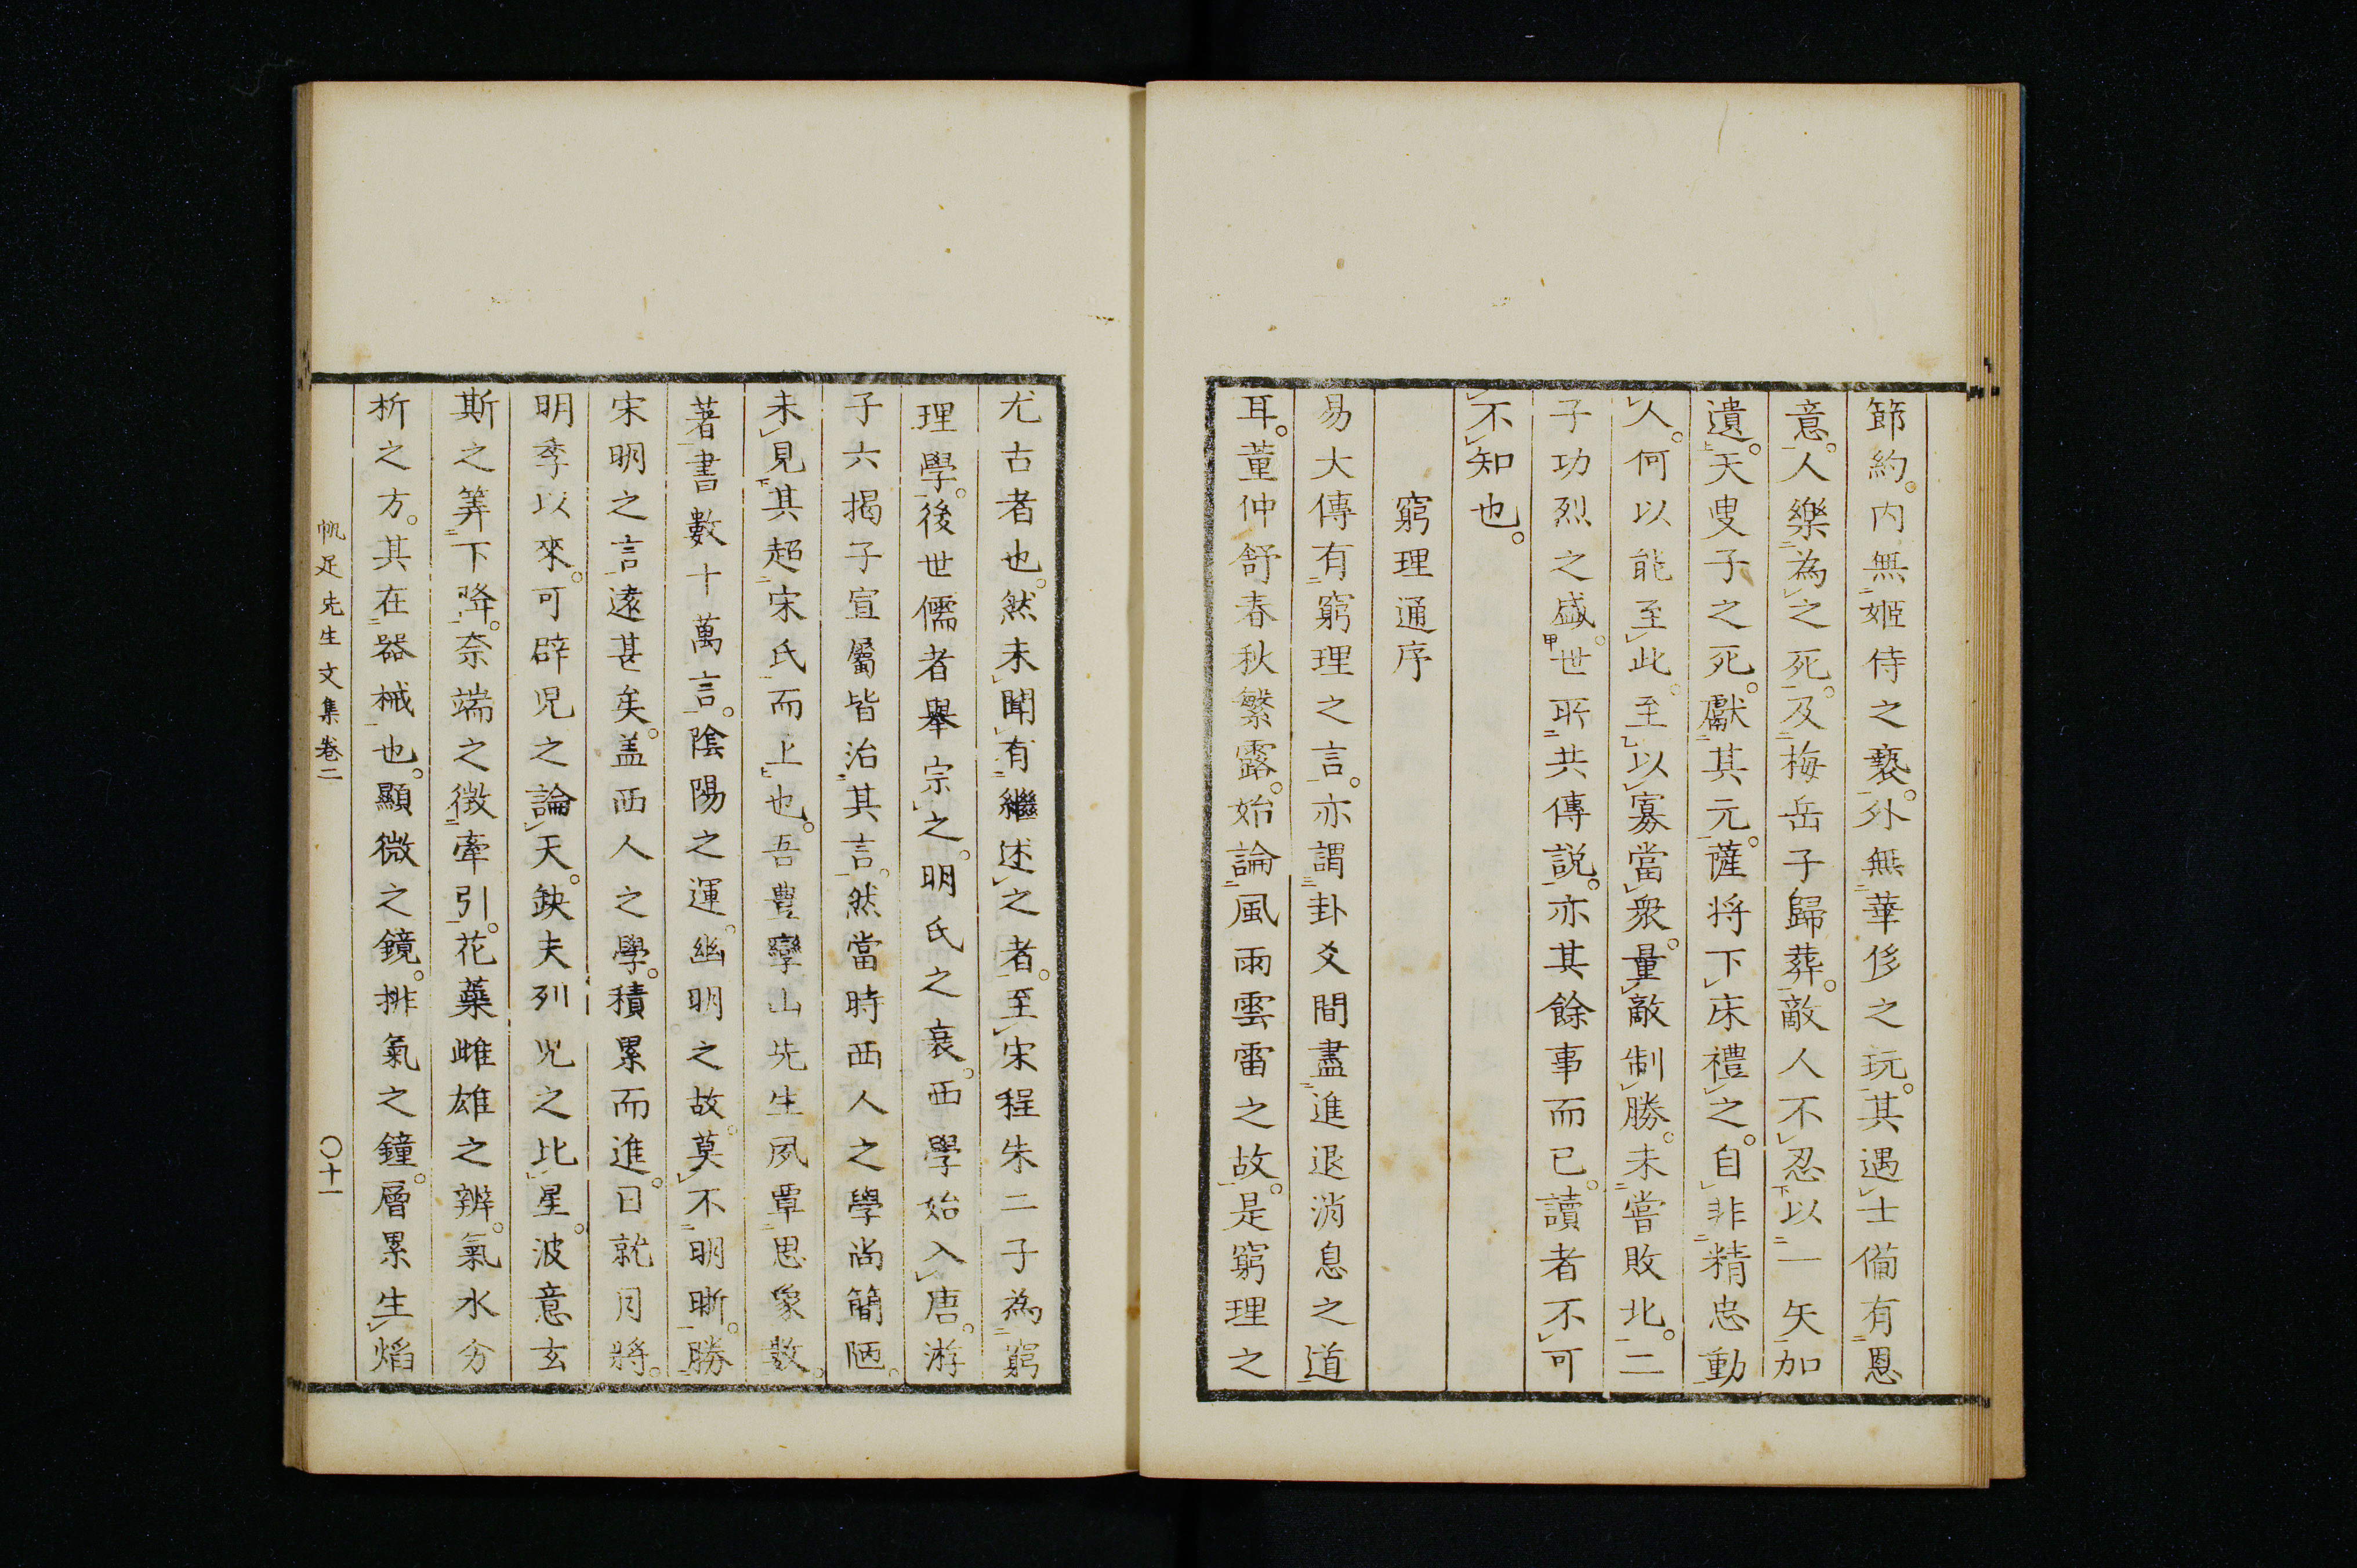 節約。内無姬侍之褻。外無華侈之玩。其遇士備有恩
意。人樂為之死。及梅岳子歸葬。敵人不忍以一矢加
遺。天叟子之死。獻其元。薩将下床禮之。自非精忠動
人。何以能至此。至以寡當衆。量敵制勝。未嘗敗北。二
子功烈之盛。世所共傳説。亦其餘事而已。讀者不可
不知也。
窮理通序
易大傳有窮理之言。亦謂卦爻間盡進退消息之道
耳。董仲舒春秋繁露。始論風雨雲雷之故。是窮理之
尤古者也。然未聞有繼述之者。至宋程朱二子為窮
理學。後世儒者舉宗之。明氏之衰。西學始入唐。游
子六揭子宣屬皆治其言。然當時西人之學尚簡陋。
未見其超宋氏而上也。吾豊孿山先生夙覃思象數。
著書數十萬言。陰陽之運。幽明之故。莫不明晣。勝
宋明之言遠甚矣。盖西人之學。積累而進。日就月將。
明季以來。可辟児之論天。鈌夫列児之比星。波意玄
斯之筭下降。奈端之徴牽引。花藥雌雄之辨。氣水分
析之方。其在器械也。顯微之鏡。排氣之鐘。層累生焰
帆足先生文集卷二
〇十一